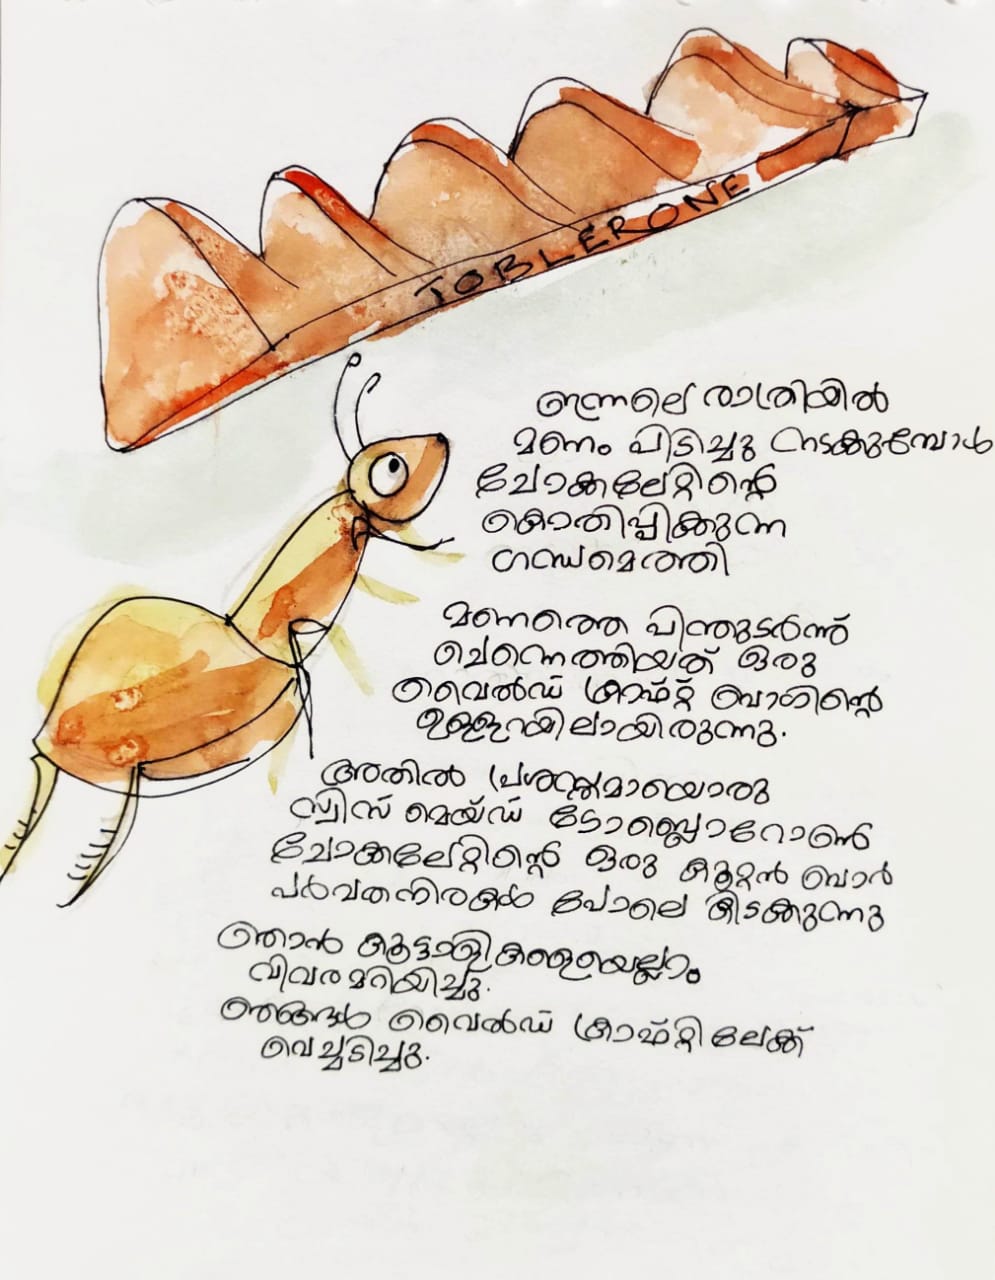 TOBLERONE
ഇന്നലെ രാത്രിയിൽ
മണം പിടിച്ചു നടക്കുമ്പോൾ
ചോക്കലേറ്റിന്റെ
കൊതിപ്പിക്കുന്ന
ഗന്ധമെത്തി
മണത്തെ പിന്തുടർന്ന്
ചെന്നെത്തിയത് ഒരു
വൈൽഡ് ക്രാഫ്റ്റ് ബാഗിന്റെ
ഉള്ളറയിലായിരുന്നു.
അതിൽ പ്രശസ്തമായൊരു
സ്വിസ് മെയ്ഡ് ടോബ്ലൊറോൺ
ചോക്കലേറ്റിന്റെ ഒരു കൂറ്റൻ ബാർ
പർവതനിരകൾ പോലെ കിടക്കുന്നു
ഞാൻ കൂട്ടാളികളെയെല്ലാം
വിവരമറിയിച്ചു.
ഞങ്ങൾ വൈൽഡ് ക്രാഫ്റ്റിലേക്ക്
വെച്ചടിച്ചു.